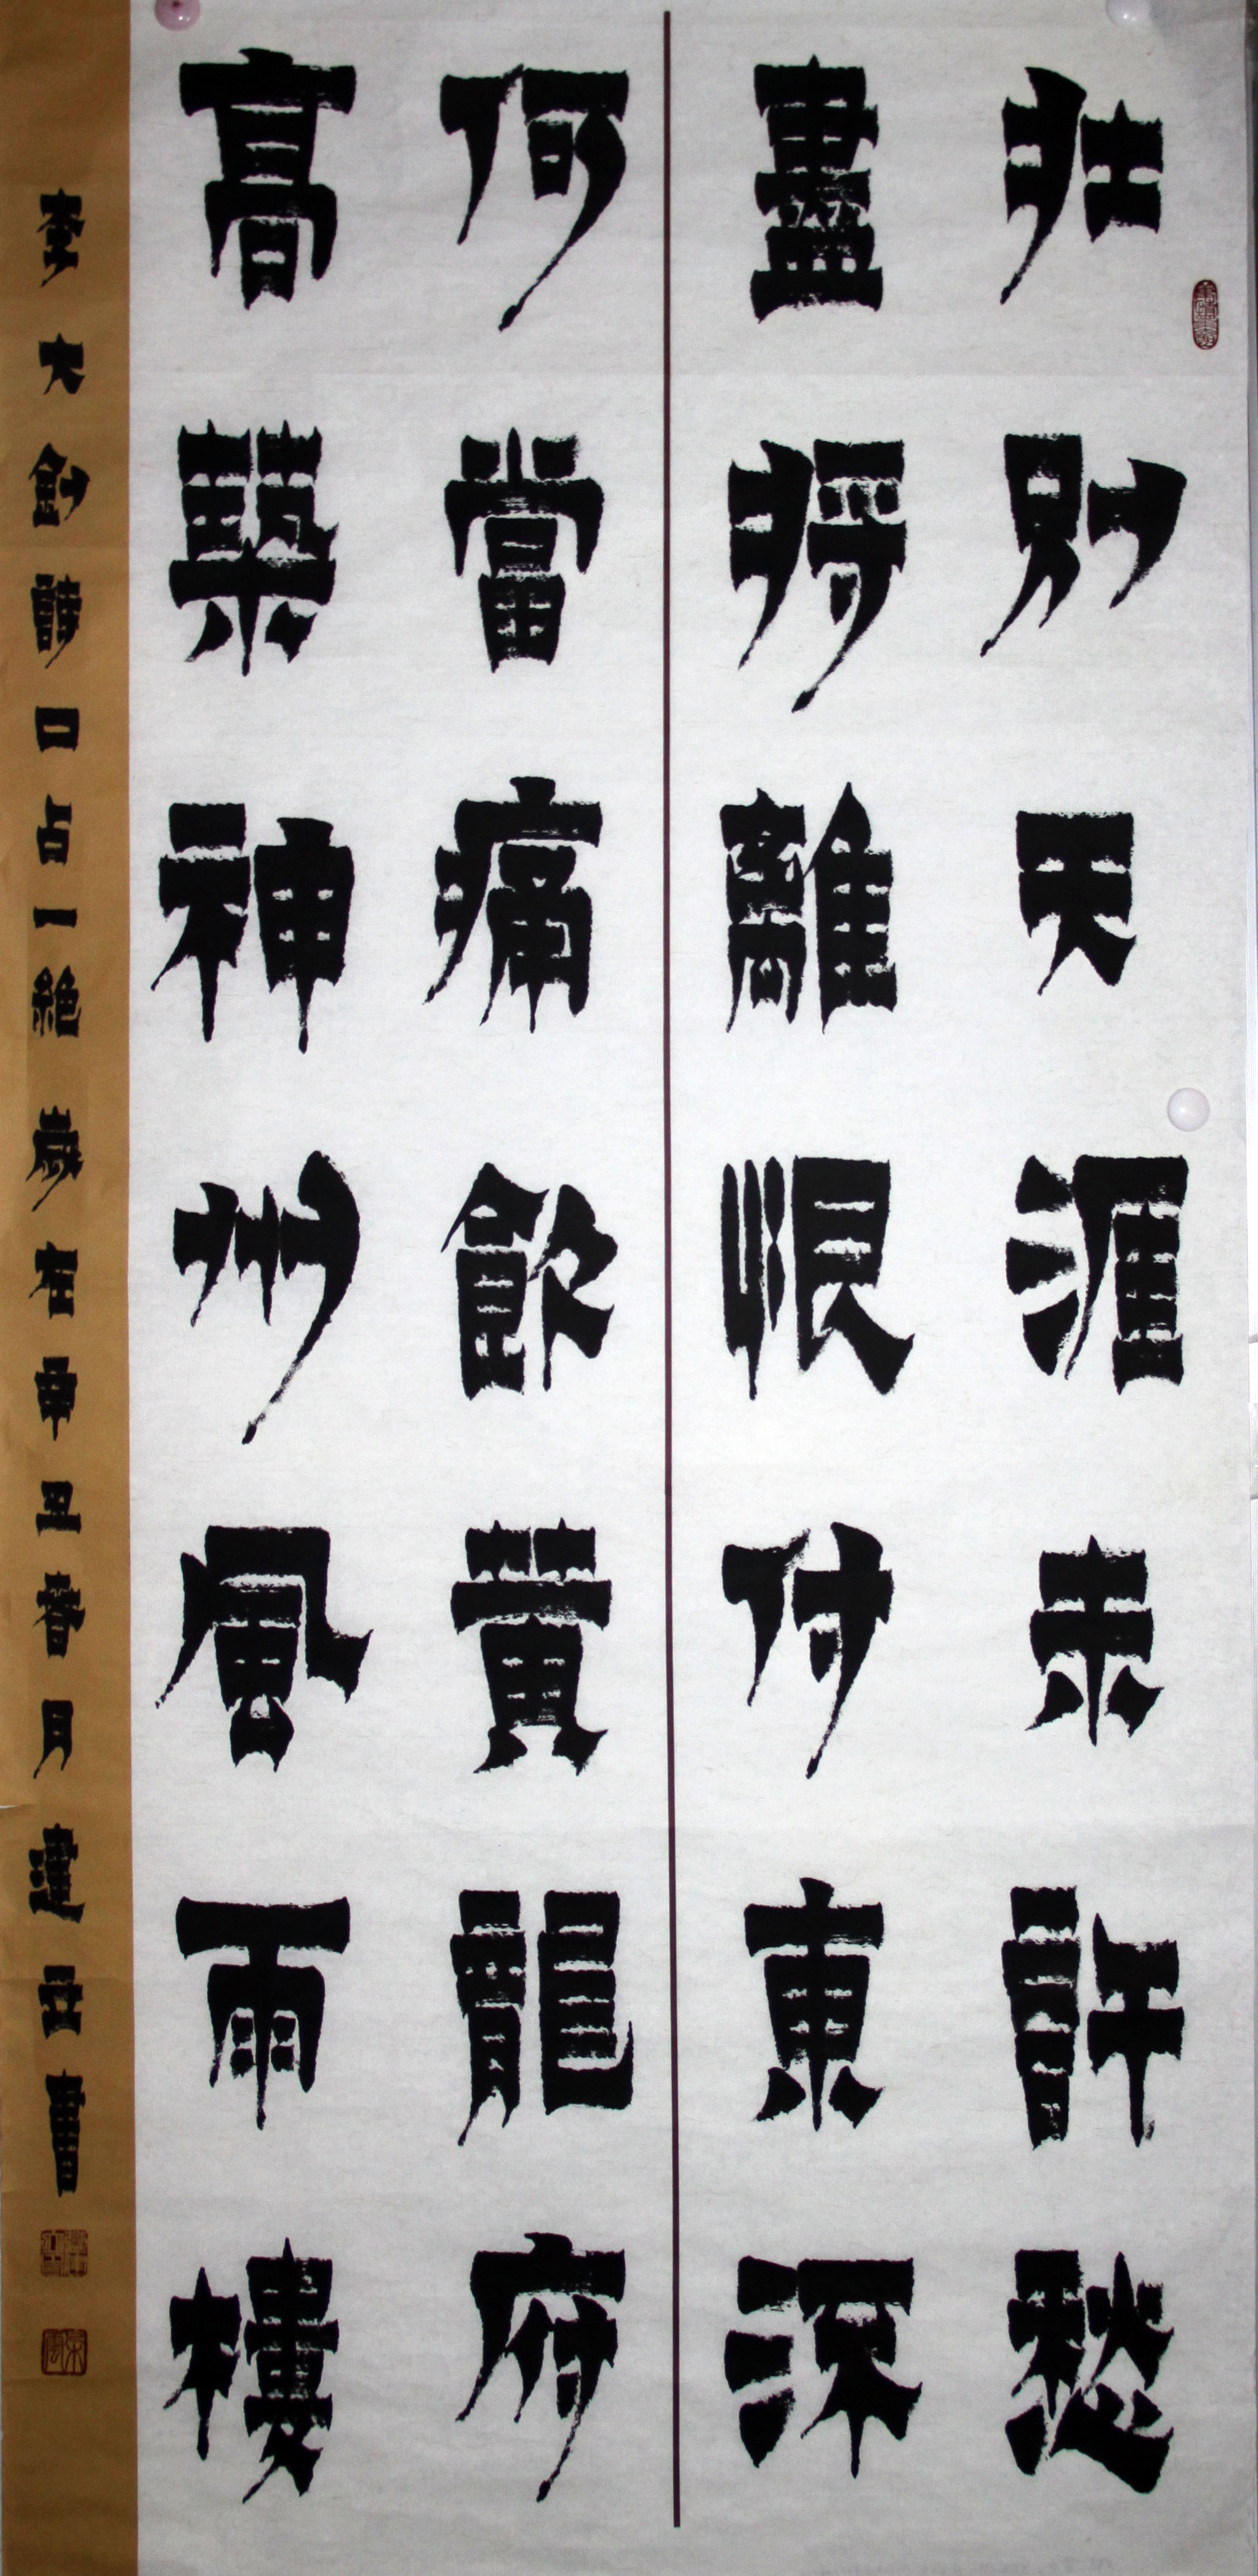 壯別天涯未許愁
盡將離恨付東深
何當痛飲黃龍府
高築神州風雨樓
李大釗詩口占一絕歲在辛丑春月建亞書